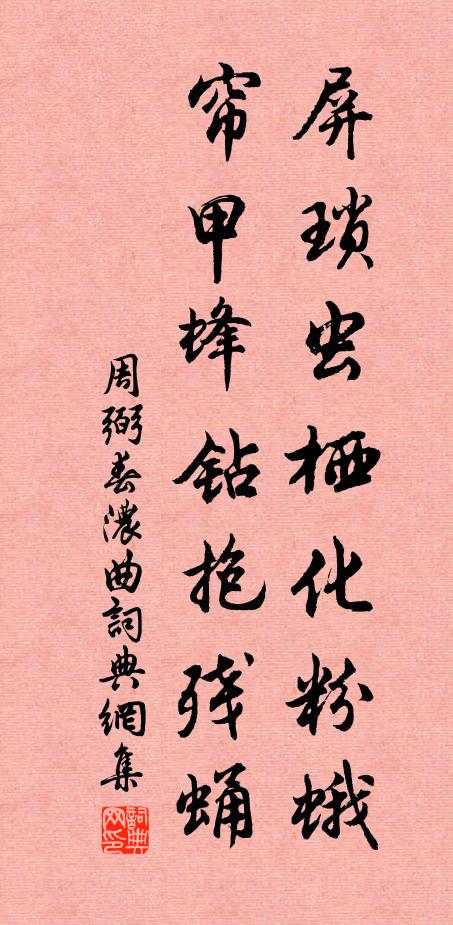 屏琐虫栖化粉蛾
帘甲蜂钻抱残蛹
周弼春濃曲詞典網集
詞典网印